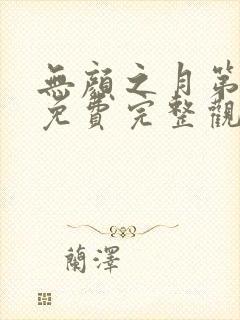 無顔之月第
免費完整觀
蘭澤